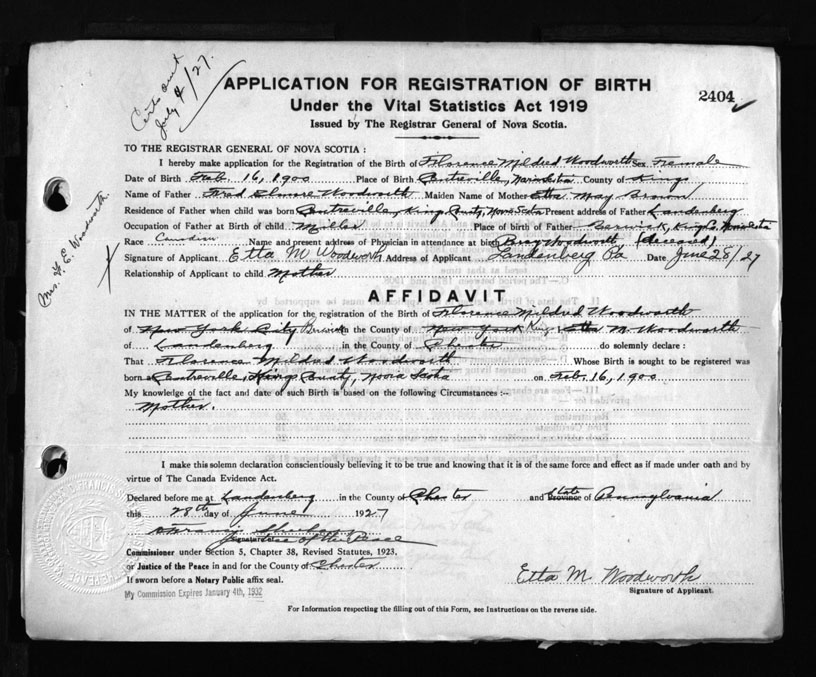 Certs sent
July 4/27.
APPLICATION FOR REGISTRATION OF BIRTH
Under the Vital Statistics Act 1919
Issued by The Registrar General of Nova Scotia.
2404
TO THE REGISTRAR GENERAL OF NOVA SCOTIA :
I hereby make application for the Registration of the Birth of Florence Mildred Woodworth Sex Female
Date of Birth Feb. 16, 1900 Place of Birth Centreville, Nova Scotia County of Kings
Name of Father Fred Elmore Woodworth Maiden Name of Mother Etta May Brown
Residence of Father when child was born Centreville, Kings County, Nova Scotia Present address of Father Landenberg
Occupation of Father at Birth of child Miller Place of birth of Father Berwick, Kings Co. Nova Scotia
Race Canadian Name and present address of Physician in attendance at birth Percy Woodworth (deceased)
Signature of Applicant Etta M Woodworth Address of Applicant Landenberg Pa Date June 28/27
Relationship of Applicant to child Mother
Mrs. F. E. Woodworth.
AFFIDAVIT
IN THE MATTER of the application for the registration of the Birth of Florence Mildred Woodworth
of New York City Berwick in the County of New York Kings Etta M. Woodworth
of Landenberg in the County of Chester do solemnly declare :
That Florence Mildred Woodworth Whose Birth is sought to be registered was
born at Centreville, Kings County, Nova Scotia on Feb. 16, 1900
My knowledge of the fact and date of such Birth is based on the following Circumstances :--
Mother.
I make this solemn declaration conscientiously believing it to be true and knowing that it is of the same force and effect as if made under oath and by
virtue of The Canada Evidence Act.
Declared before me at Landenberg in the County of Chester and State Province of Pennsylvania
this 28th day of June 1927
Justice of the Peace
Commissioner under Section 5, Chapter 38, Revised Statutes, 1923.
or Justice of the Peace in and for the County of Chester
If sworn before a Notary Public affix seal.
My Commission Expires January 4th, 1932
Etta M Woodworth
Signature of Applicant.
For Information respecting the filling out of this Form, see Instructions on the reverse side.